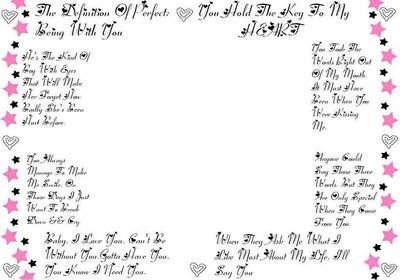 The Definition Of Perfect:
Being With You
You Hold The Key To My
HEART
He's The Kind Of
Boy With Eyes
That Will Make
Her Forget How
Badly She's Been
Hurt Before.
You Took The
Words Right Out
Of My Mouth.
It Must Have
Been When You
Were Kissing
Me.
You Always
Manage To Make
Me Smile. On
Those Days I Just
Want To Break
Down && Cry
Anyone Could
Say Those Three
Words. But They
Are Only Special
When They Come
From You.
Baby, I Love You. Can't Be
Without You.Gotta Have You.
You Know I Need You.
When They Ask Me What I
Like Most About My Life. I'll
Say You